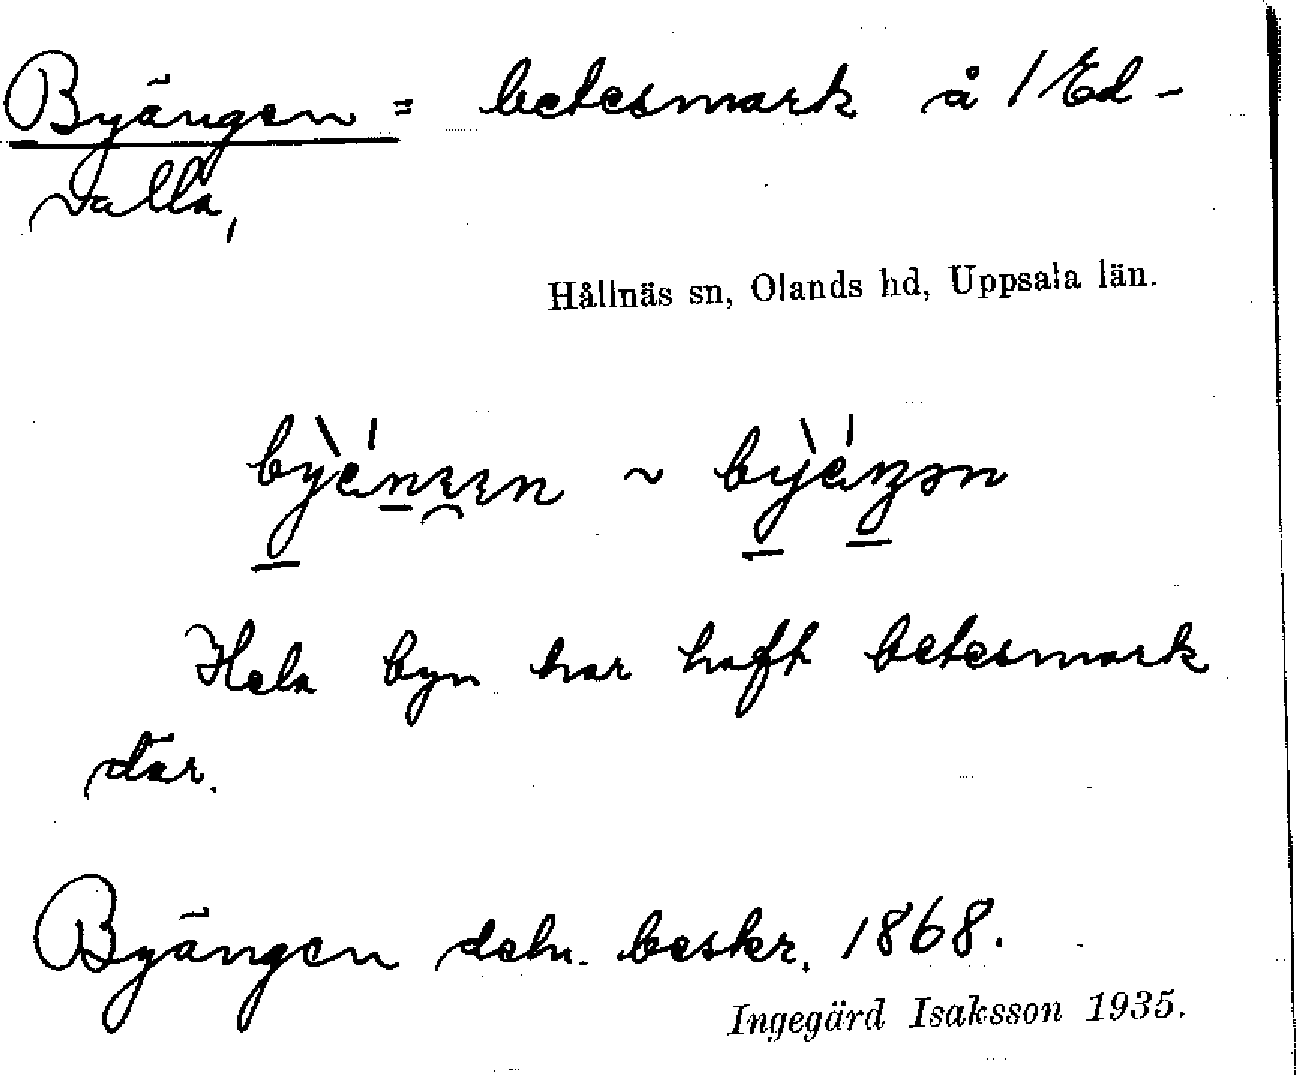 Byängen = betesmark å 1 Ed-
valla,
Hållnäs sn, Olands hd, Uppsala län.
~
Hela byn har haft betesmark
där.
Byängen deln. beskr. 1868.
Ingegärd Isaksson 1935.